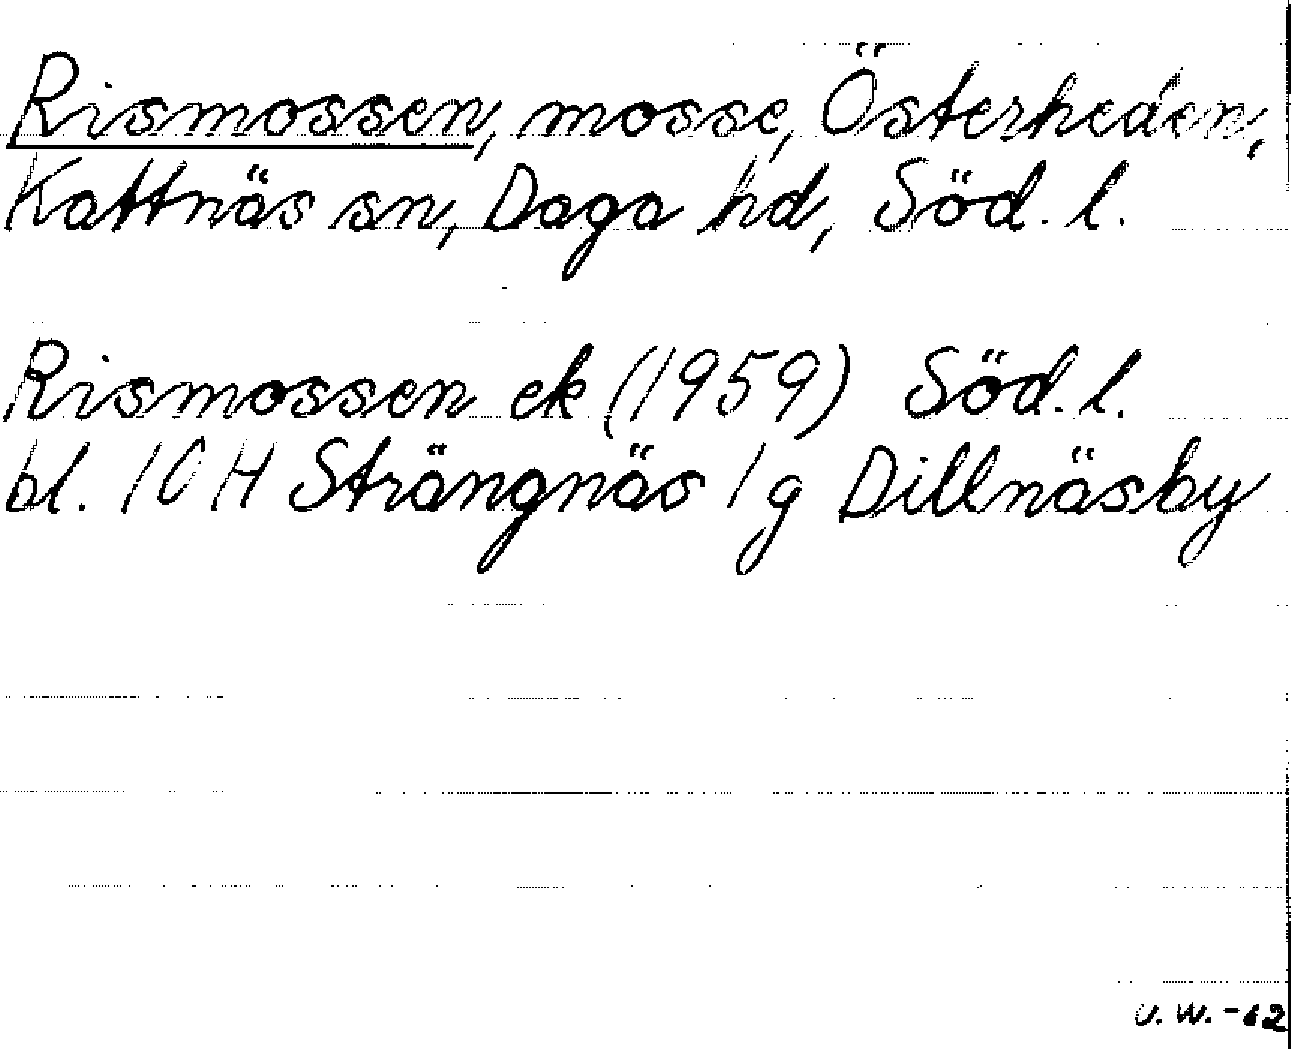 Rismossen, mosse, Österheden,
Kattnäs sn, Daga hd, Söd. l.
Rismossen ek (1959) Söd. l.
bl. 10 H Strängnäs 1 g Dillnäsby
U. W. -62